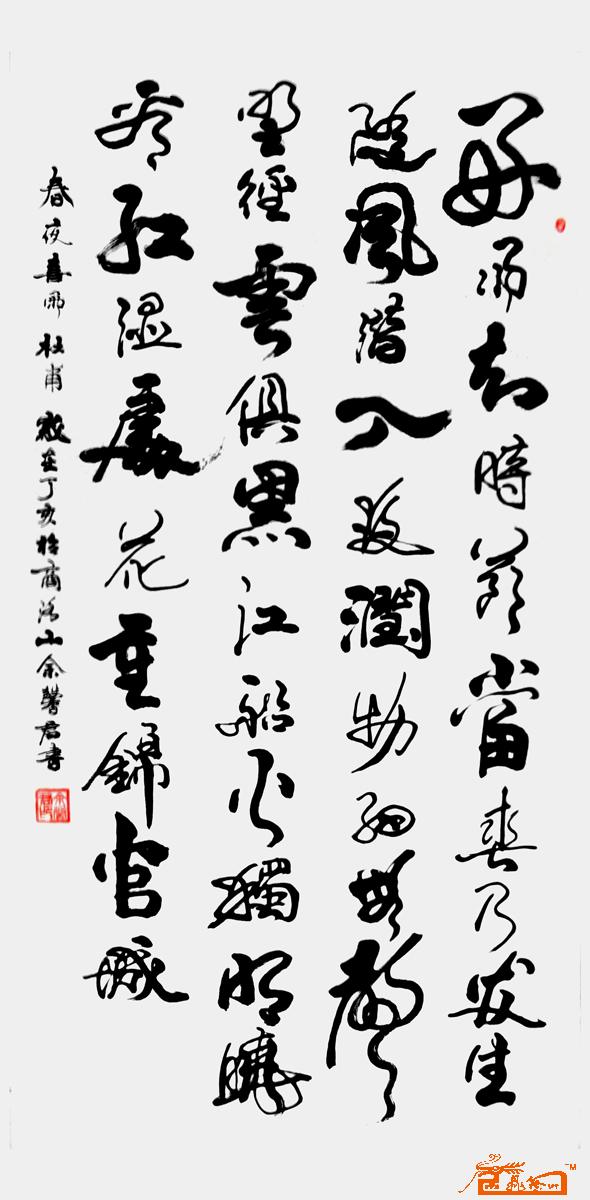 好雨知時節當春乃發生
隨風潛入夜潤物細無聲
野徑雲俱黑江船火獨明曉
看紅濕處花重錦官城
春夜喜雨 杜甫 歲在丁亥於商洛山余馨君書